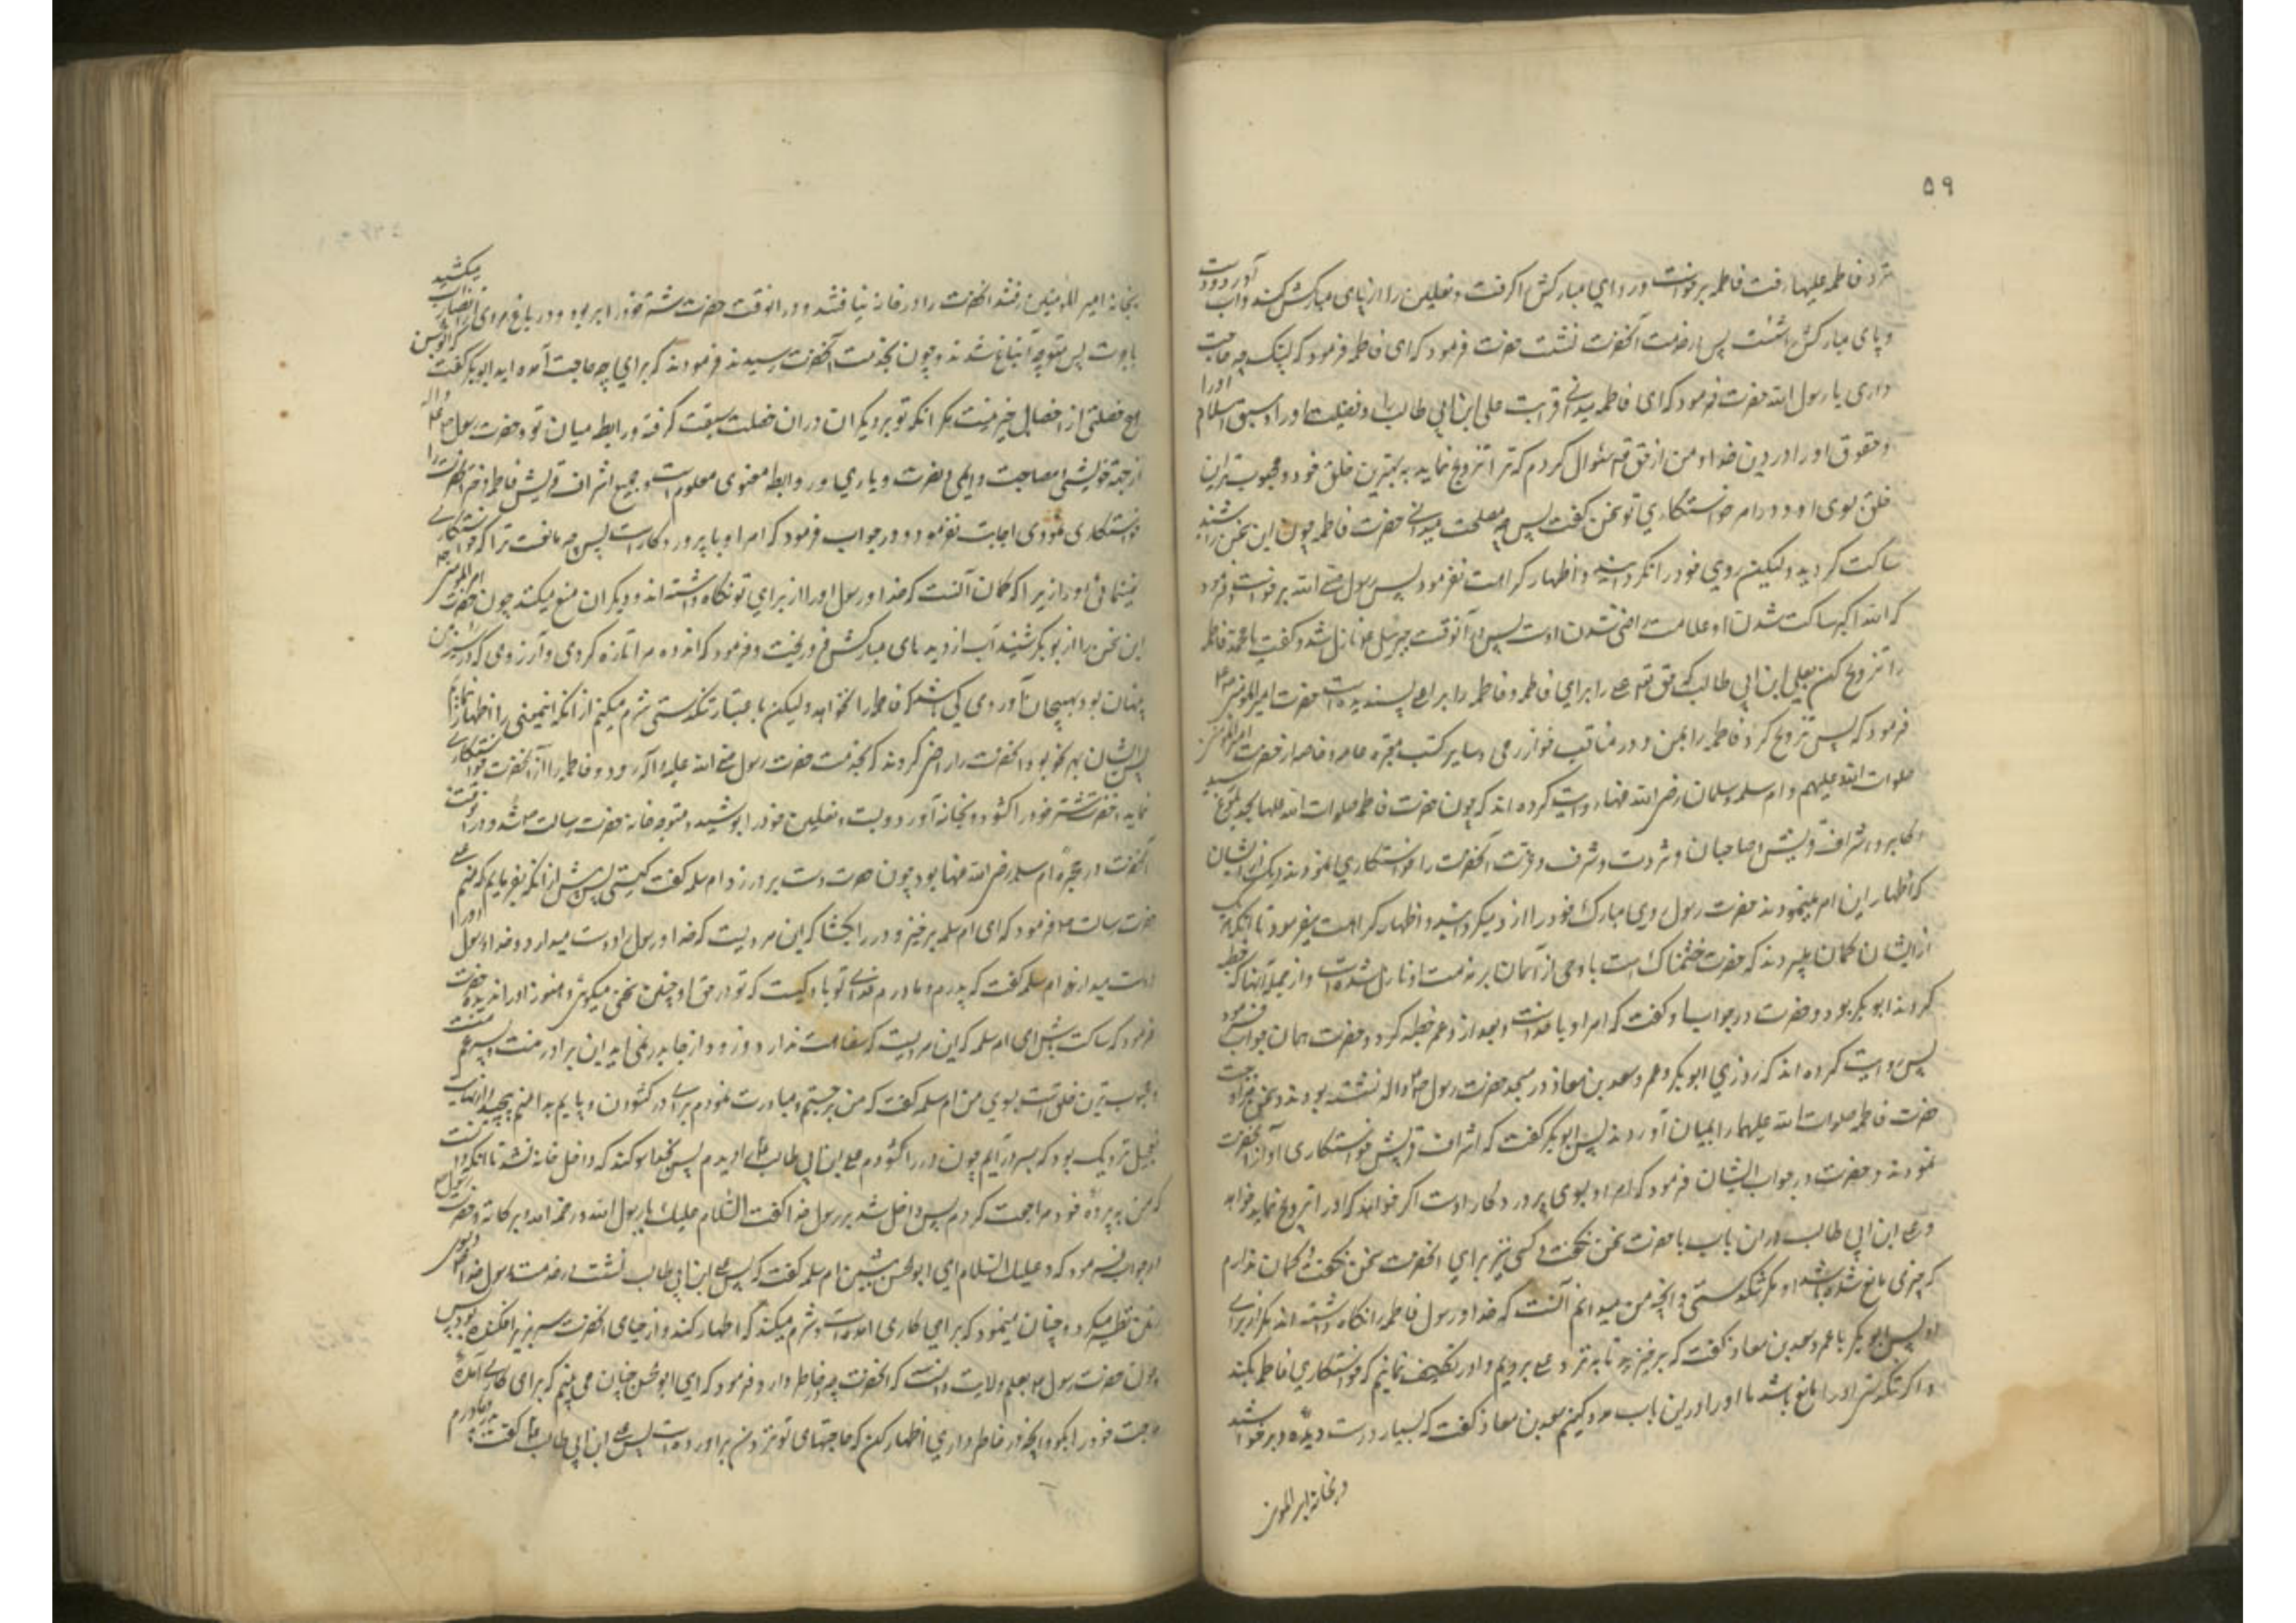 ۵۹
نزد فاطمه علیها رفت فاطمه برخواست و ردای مبارکش را گرفت و نعلین را از پای مبارکش کند و آب آورد و دست
و پای مبارکش را شست پس در خدمت آنحضرت نشست حضرت فرمود که ای فاطمه فرمود که لبیک چه حاجت
داری یا رسول الله حضرت فرمود که ای فاطمه میدانی قرابت علی ابن ابی طالب را و فضیلت او را و سبق اسلام او را
و حقوق او را در دین خدا و من از حق تعه سئوال کردم که ترا تزویج نماید به بهترین خلق خود و محبوب ترین
خلق بسوی او و در امر خواستگاری تو سخن گفت پس چه مصلحت میدانی حضرت فاطمه چون این سخن را شنید
ساکت گردید و لیکن روی خود را نگردانید و اظهار کراهت نفرمود پس رسول صلی الله برخواست و فرمود
که الله اکبر ساکت شدن او علامت راضی شدن اوست پس در آنوقت جبرئیل ع نازل شد و گفت یا محمد فاطمه
را تزویج کن بعلی ابن ابی طالب که حق تعه علی را برای فاطمه و فاطمه را برای علی پسندیده است حضرت امیر المومنین ع
فرمود که پس تزویج کرد فاطمه را بمن و در مناقب خوارزمی و سایر کتب معتبره عامه و خاصه از حضرت امیر المومنین
صلوات الله علیهم و ام سلمه و سلمان رضی الله عنهما روایت کرده اند که چون حضرت فاطمه صلوات الله علیها بحد بلوغ رسید
اکابر و اشراف قریش و صاحبان و ثروت و شرف و عزت آنحضرت را خواستگاری نمودند و هر یک از ایشان
که اظهار این امر مینمودند حضرت رسول روی مبارک خود را از او میگردانید و اظهار کراهت میفرمود تا آنکه هر یک
از ایشان گمان میبردند که حضرت خشمناک است یا وحی از آسمان بر مذمت او نازل شده است و از جمله آنها که خطبه
کردند ابوبکر بود و حضرت در جواب او گفت که امر او با خداست و بعد از او عمر خطبه کرد و حضرت همان جواب فرمود
پس روایت کرده اند که روزی ابوبکر و عمر و سعد بن معاذ در مسجد حضرت رسول ص واله نشسته بودند و سخن مزاوجت
حضرت فاطمه صلوات الله علیهما را بمیان آوردند پس ابوبکر گفت که اشراف قریش خواستگاری او از آنحضرت
نمودند و حضرت در جواب ایشان فرمود که امر او بسوی پروردگار اوست اگر خواهد که او را تزویج نماید خواهد
و علی ابن ابی طالب در این باب با حضرت سخن نگفت و کسی نیز برای آنحضرت سخن نگفت و گمان ندارم
که چیزی مانع شده باشد او را مگر تنگدستی و آنچه من میدانم آنست که خدا و رسول فاطمه را نگاه داشته اند مگر از برای
او پس ابوبکر با عمر و سعد بن معاذ گفت که برخیزید تا به نزد علی برویم و او را تکلیف نمائیم که خواستگاری فاطمه بکند
و اگر تنگدستی او را مانع باشد ما او را در این باب مدد کنیم سعد بن معاذ گفت که بسیار درست دیدهٔ و برخواستند
و بخانهٔ امیر المومنین
بخانهٔ امیر المومنین رفتند آنحضرت را در خانه نیافتند و در آنوقت حضرت شتر خود را برده بود و در باغ مردی از انصار آب میکشید
باجرت پس متوجه آن باغ شدند و چون بخدمت آنحضرت رسیدند فرمودند که برای چه حاجت آمده اید ابوبکر گفت که ای ابو الحسن
هیچ خصلتی از خصال خیر نیست مگر آنکه تو بر دیگران در آن خصلت سبقت گرفته و رابطه میان تو و حضرت رسول صلی الله و اله
از جهة خویشی و مصاحبت دایمی و نصرت و یاری و روابط معنوی معلوم است و جمیع اشراف قریش فاطمه دختر آنحضرت را
خواستگاری نمودی اجابت نفرمود و در جواب فرمود که امر او با پروردگار است پس چه مانعست ترا که خواستگاری
نمینمائی او را زیرا که گمان آنست که خدا و رسول او را از برای تو نگاه داشته اند و دیگران منع میکنند چون حضرت امیر المومنین
این سخن را از ابوبکر شنید آب از دیده های مبارکش فرو ریخت و فرمود که اندوه مرا تازه کردی و آرزوی که در سینه من
پنهان بود بهیجان آوردی کی باشد که فاطمه را نخواهد و لیکن باعتبار تنگدستی شرم میکنم از آنکه این معنی را اظهار نمایم
پس ایشان بهر نحو بود آنحضرت را راضی کردند که بخدمت حضرت رسول صلی الله علیه و آله رود و فاطمه را از آنحضرت خواستگاری
نماید حضرت شتر خود را گشود و بخانه آورد و بست و نعلین خود را پوشید و متوجه خانه حضرت رسالت ص شد و در آنوقت
آنحضرت در حجرهٔ ام سلمه رضی الله عنها بود چون حضرت دست بر در زد ام سلمه گفت کیستی پس پیش از آنکه بفرمایم که منم علی
حضرت رسالت ص فرمود که ای ام سلمه برخیز و در را بگشا که این مردیست که خدا و رسول او را دوست میدارد و خدا و رسول او را
دوست میدارد ام سلمه گفت که پدرم و مادرم فدای تو باد کیست که تو در حق او چنین سخنی میگوئی و هنوز او را ندیده حضرت
فرمود که ساکت باش ای ام سلمه که این مردیست که سفاهت ندارد و زود از جا بدر نمی آید این برادر منست و پسر عم منست
و محبوب ترین خلق است بسوی من ام سلمه گفت که من برجستم و مبادرت نمودم برای در گشودن و پایم بدامنم پیچید از نهایت
تعجیل نزدیک بود که بسر در آیم چون در را گشودم علی بن ابی طالب ع را دیدم پس بخدا سوگند که داخل خانه نشد تا آنکه دانست
که من به پردهٔ خود مراجعت کردم پس داخل شد بر رسول خدا گفت السلام علیک یا رسول الله و رحمة الله و برکاته و حضرت رسول
در جواب فرمود که و علیک السلام ای ابو الحسن بنشین ام سلمه گفت که پس علی ابن ابی طالب نشست در خدمت رسول خدا و بسوی
زمین نظر میکرد و چنان مینمود که برای کاری آمده است و شرم میکند که اظهار کند و از حیای آنحضرت سر بزیر افکنده بود پس
چون حضرت رسول ص بعلم ولایت دانست که آنحضرت چه در خاطر دارد فرمود که ای ابو الحسن چنان می بینم که برای کاری آمدهٔ
حاجت خود را بگو و آنچه در خاطر داری اظهار کن که حاجتهای تو نزد من برآورده است پس علی ابن ابی طالب ع گفت پدر و مادرم